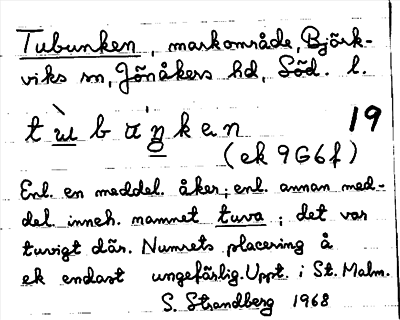 Tubunken, markområde, Björk-
viks sn, Jönåkers hd, Söd. l.
19
t ù b u ŋ́ k e n
(ek 9G6f)
Enl. en meddel. åker; enl. annan med-
del. inneh. namnet tuva; det var
tuvigt där. Numrets placering å
ek endast ungefärlig. Uppt. i St. Malm.
S. Strandberg 1968